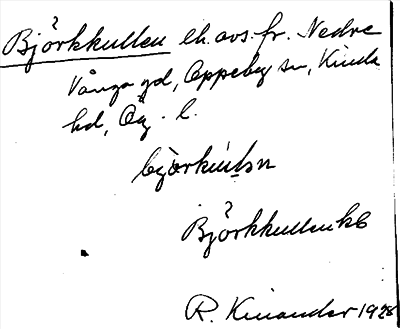 Björkkullen lh. avs. fr. Nedre
Vånga gd, Oppeby sn, Kinda
hd, Ög. l.
björkullsn
Björkkullen kb
R. Kinander 1928